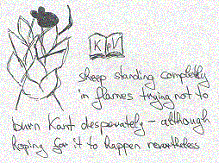 K P V
sheep standing completely
in flames trying not to
burn Kant desperately – although
hoping for it to happen nevertheless